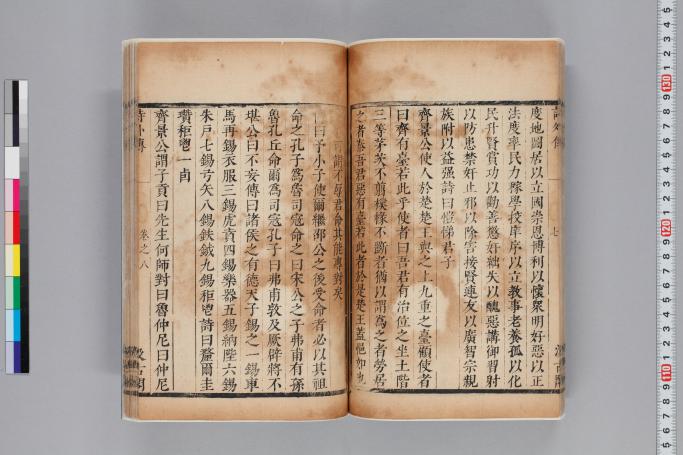 詩外傳
七
汲古閣
度地圖居以立國崇恩博利以懷衆明好惡以正
法度率民力稼學校庠序以立教事老養孤以化
民升賢賞功以勸善懲奸絀失以醜惡講御習射
以防患禁奸止邪以除害接賢連友以廣智宗親
族附以益强詩曰愷悌君子
齊景公使人於楚楚王與之上九重之臺顧使者
曰齊有臺若此乎使者曰吾君有治位之坐土階
三等茅茨不翦樸椽不斲者猶以謂爲之者勞居
之者泰吾君惡有臺若此者於是楚王蓋悒如也
可謂不辱君命其能專對矣
曰予小子使爾繼邵公之後受命者必以其祖
命之孔子爲魯司寇命之曰宋公之子弗甫有孫
魯孔丘命爾爲司寇孔子曰弗甫敦及厥辟將不
堪公曰不妄傳曰諸侯之有德天子錫之一錫車
馬再錫衣服三錫虎賁四錫樂器五錫納陛六錫
朱戶七錫弓矢八錫鈇鉞九錫秬鬯詩曰釐爾圭
瓚秬鬯一卣
齊景公謂子貢曰先生何師對曰魯仲尼曰仲尼
詩外傳
卷之八
汲古閣